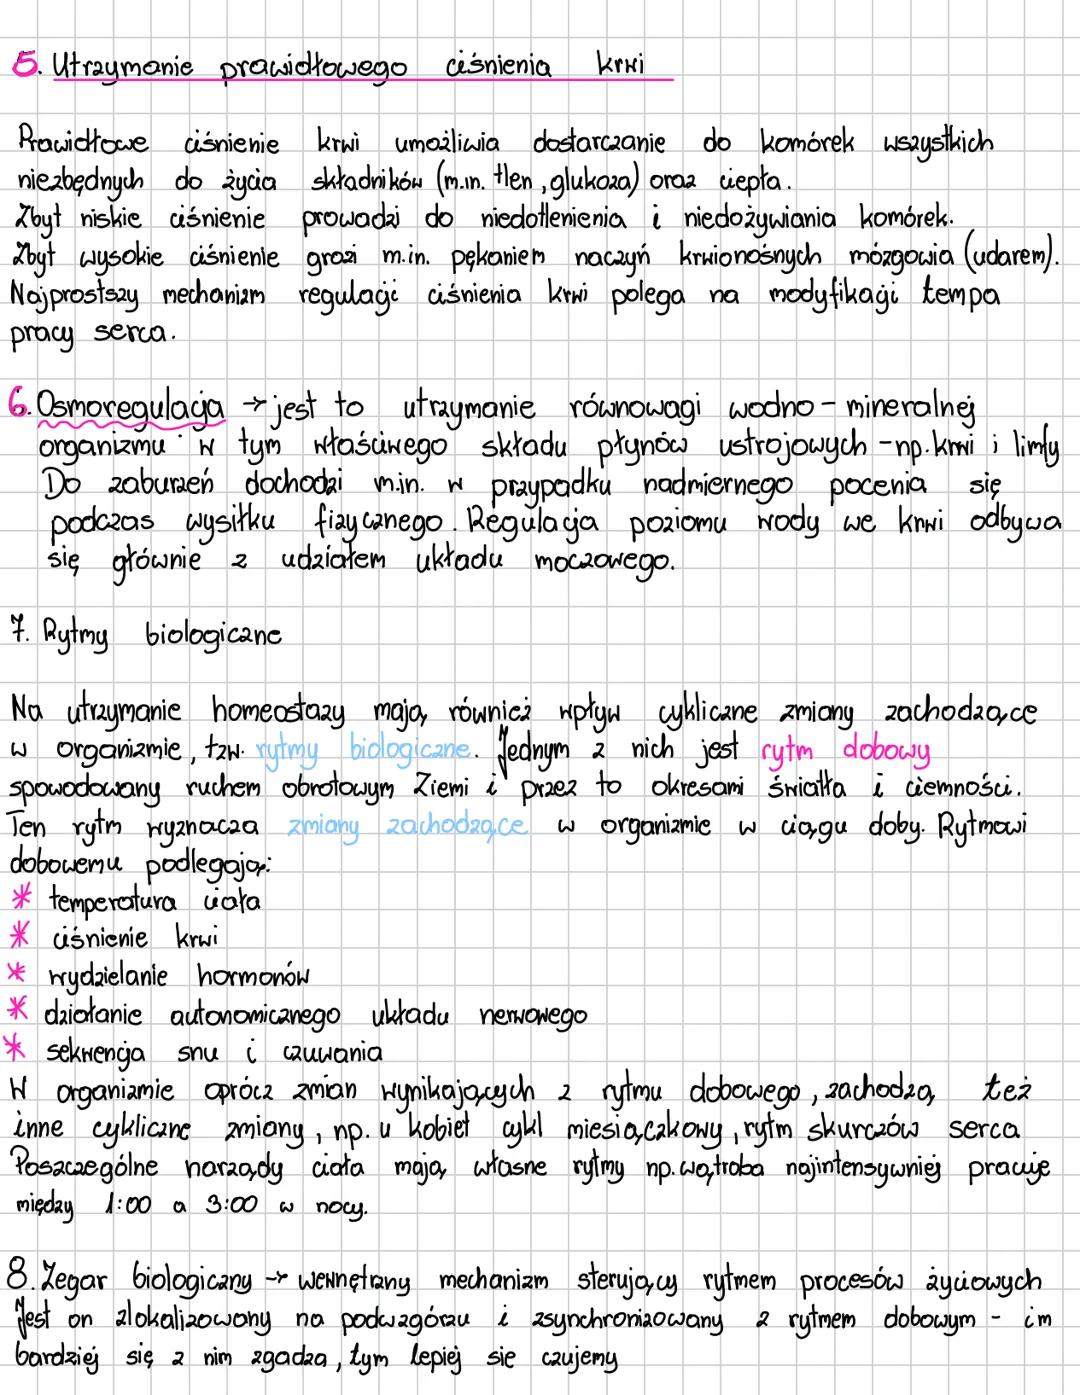 5. Utrzymanie prawidłowego ciśnienia krwi
Prawidłowe ciśnienie krwi umożliwia dostarczanie do komórek wszystkich
niezbędnych do życia składników (m.in. tlen, glukoza) oraz ciepła.
Zbyt niskie ciśnienie prowadzi do niedotlenienia i niedożywiania komórek.
Zbyt wysokie ciśnienie grozi m.in. pękaniem naczyń krwionośnych mózgowia (udarem).
Najprostszy mechanizm regulacji ciśnienia krwi polega na modyfikacji tempa
pracy serca.
6. Osmoregulacja → jest to utrzymanie równowagi wodno - mineralnej
organizmu w tym właściwego składu płynów ustrojowych - np. krwi i limfy
Do zaburzeń dochodzi m.in. w przypadku nadmiernego pocenia się
podczas wysiłku fizycznego. Regulacja poziomu wody we krwi odbywa
się głównie z udziałem układu moczowego.
7. Rytmy biologiczne
Na utrzymanie homeostazy mają również wpływ cykliczne zmiany zachodzące
w organizmie, tzw. rytmy biologiczne. Jednym z nich jest rytm dobowy
spowodowany ruchem obrotowym Ziemi i przez to okresami światła i ciemności.
Ten rytm wyznacza zmiany zachodzące w organizmie w ciągu doby. Rytmowi
dobowemu podlegają:
* temperatura ciała
* ciśnienie krwi
* wydzielanie hormonów
* działanie autonomicznego układu nerwowego
* sekwencja snu i czuwania
W organizmie oprócz zmian wynikających z rytmu dobowego, zachodzą też
inne cykliczne zmiany, np. u kobiet cykl miesiączkowy, rytm skurczów serca
Poszczególne narządy ciała mają własne rytmy np. wątroba najintensywniej pracuje
między 1:00 a 3:00 w nocy.
8. Zegar biologiczny → wewnętrzny mechanizm sterujący rytmem procesów życiowych
Jest on zlokalizowany na podwzgórzu i zsynchronizowany z rytmem dobowym - im
bardziej się z nim zgadza, tym lepiej sie czujemy